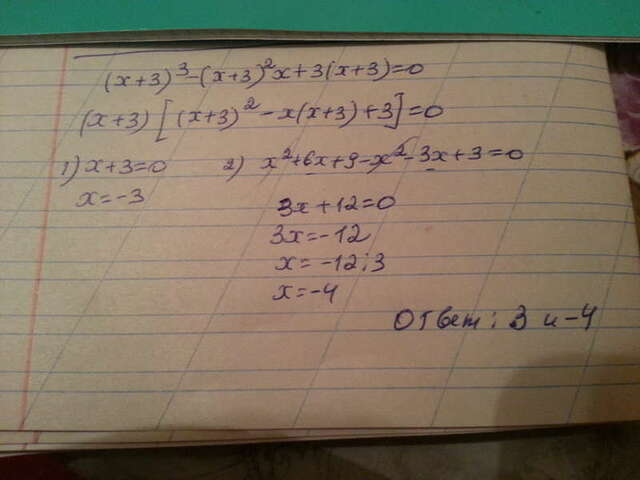 (x+3)³-(x+3)²x+3(x+3)=0
(x+3)[(x+3)²-x(x+3)+3]=0
1) x+3=0 2) x²+6x+9-x²-3x+3=0
x=-3
3x+12=0
3x=-12
x=-12:3
x=-4
Ответ: 3 и -4